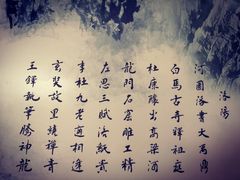 洛陽
河圖洛書大
白馬古寺釋祖庭
杜康釀出高粱酒
龍門石窟雕工精
左思三賦洛紙貴
李杜九老相逢
玄奘故里繞禪音
王鐸執筆勝神龍